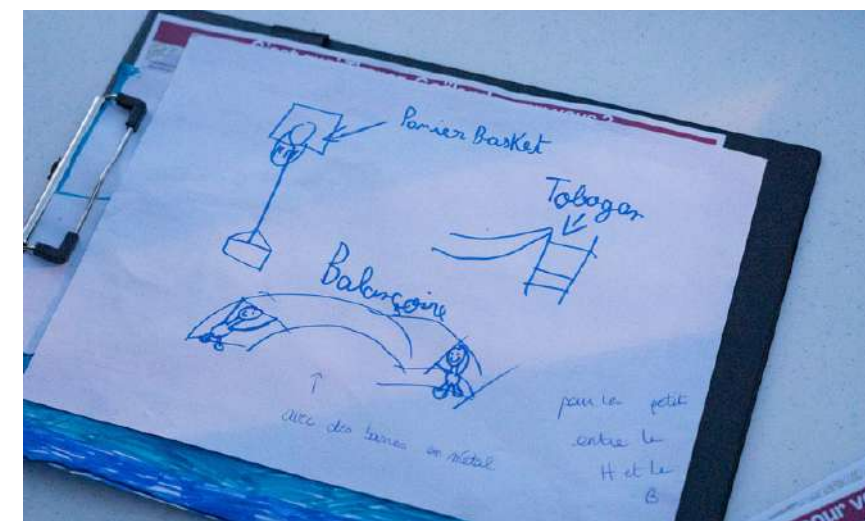 Panier Basket
Tobogan
Balançoire
avec des barres en métal
pour les petit
entre le
H et le
B
our v